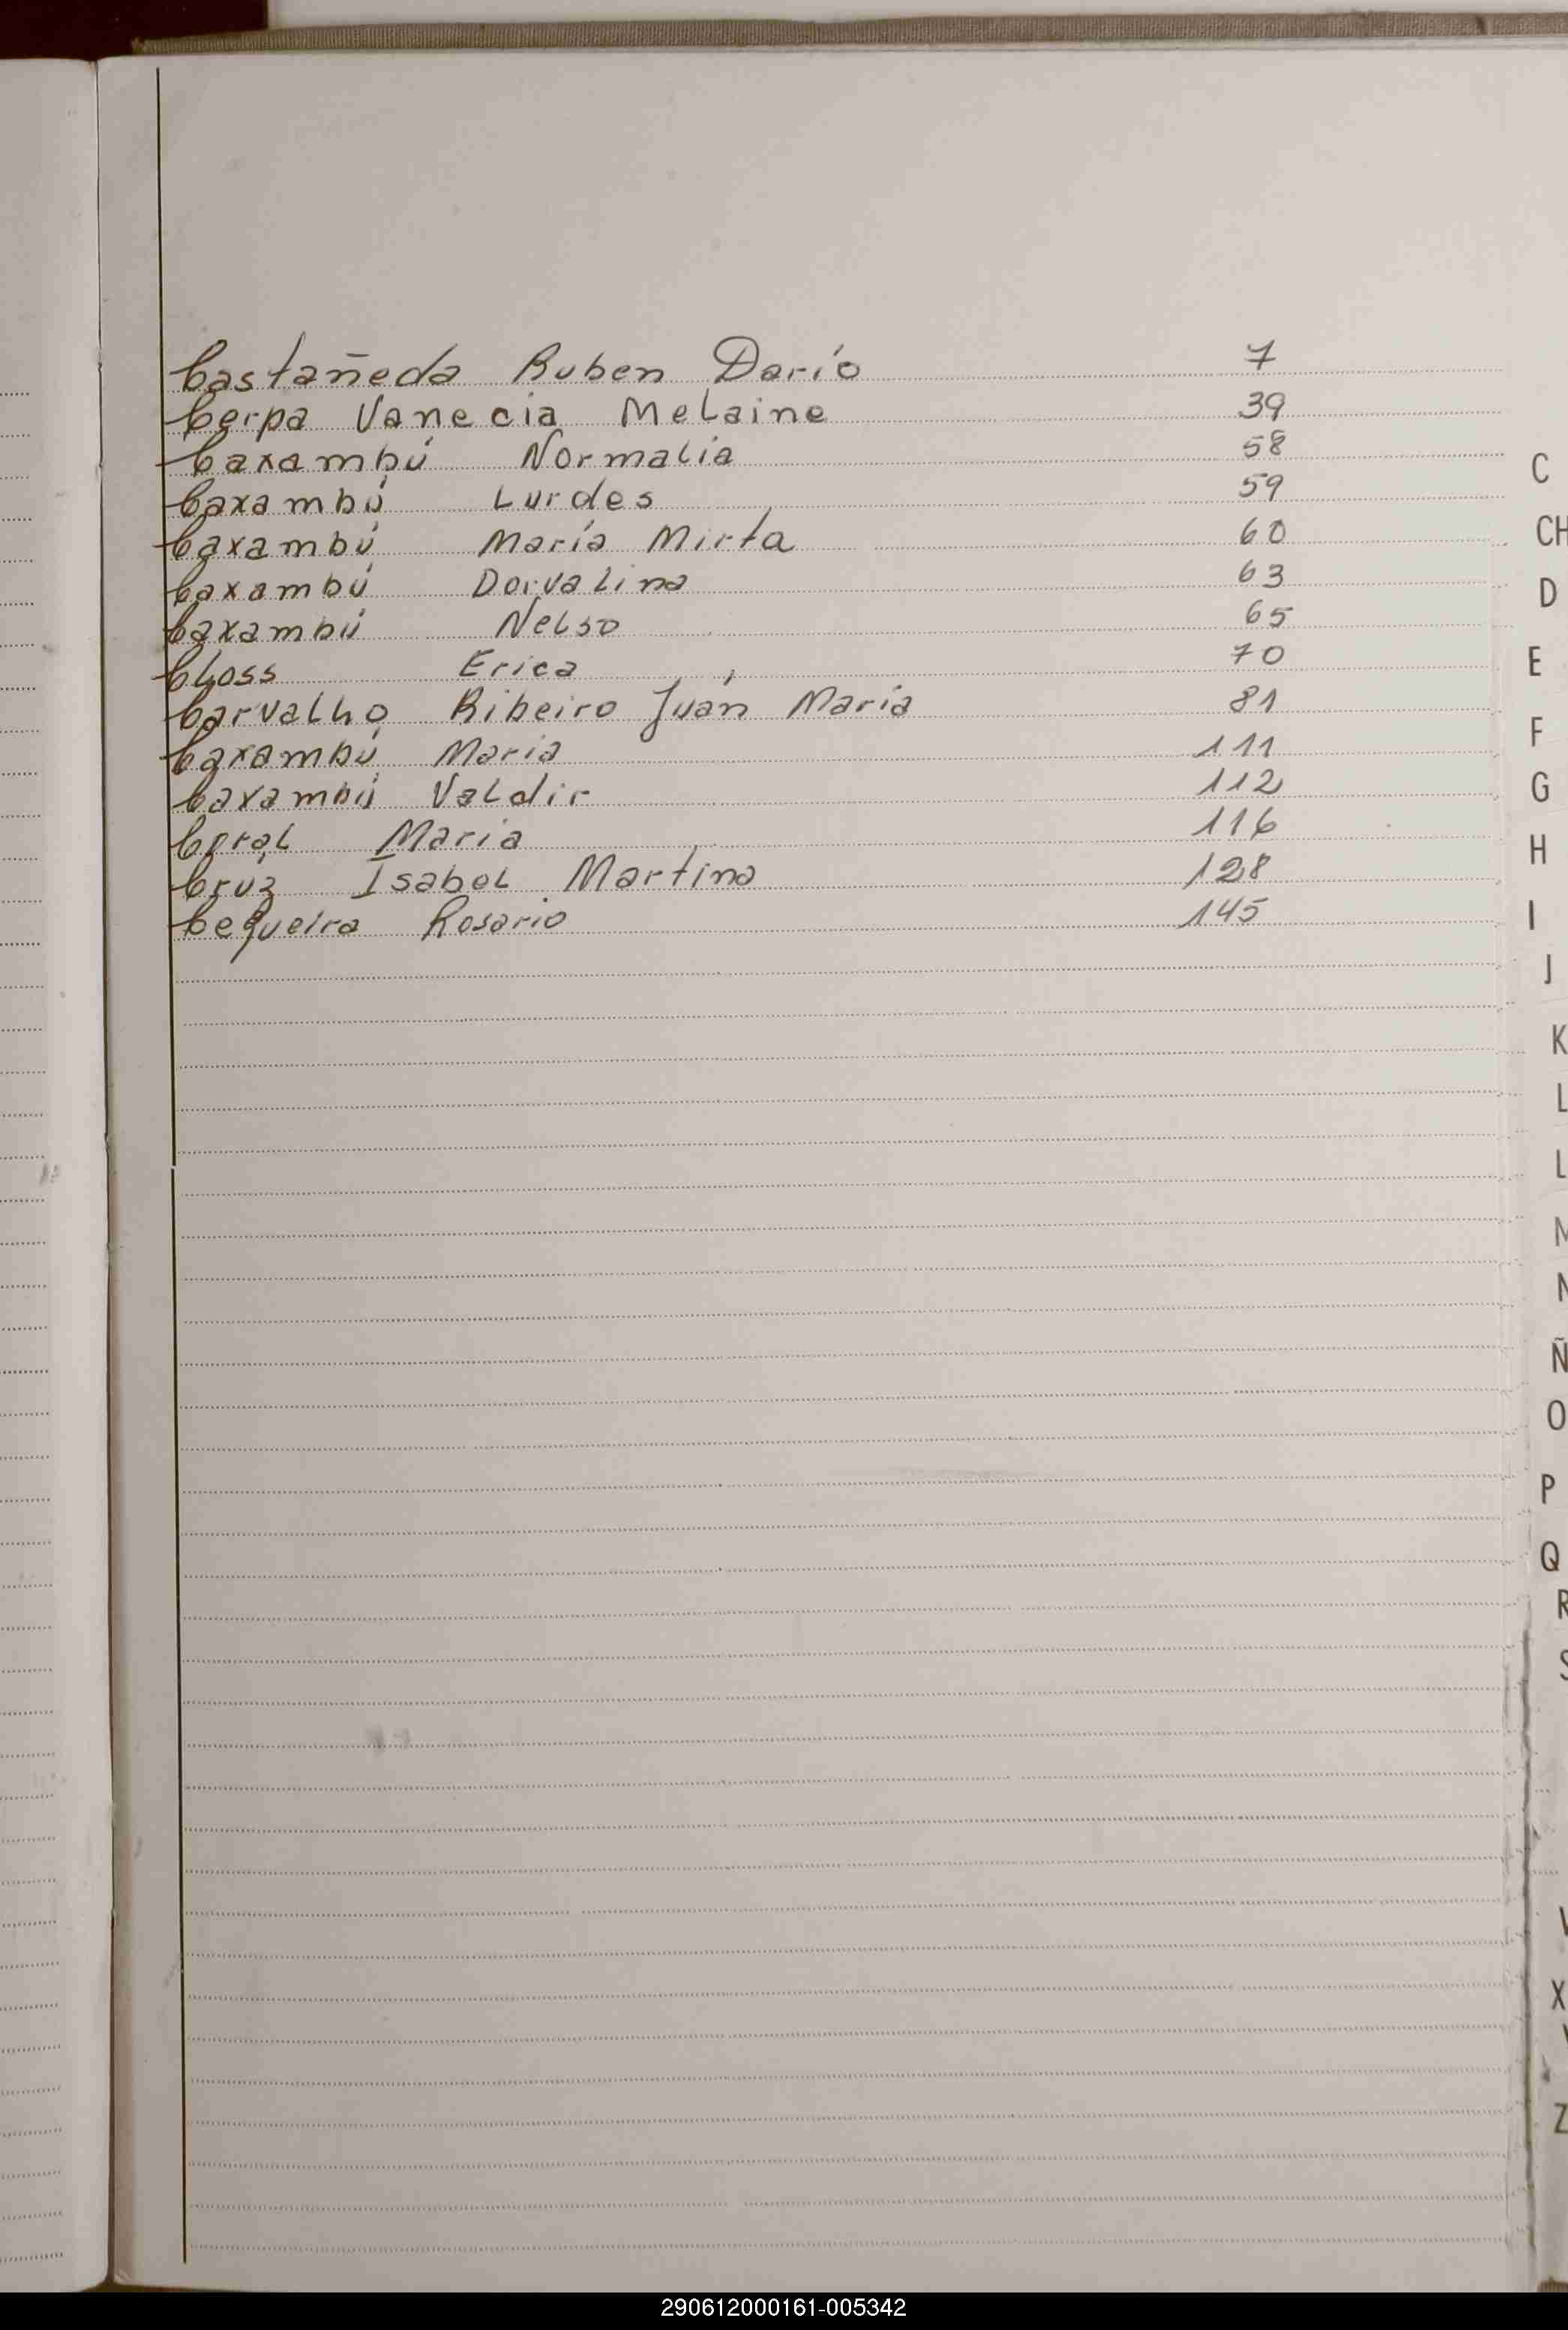 Castañeda Ruben Darío 7
Cerpa Vanecia Melaine 39
Caxambú Normalia 58
Caxambú Lurdes 59
Caxambú María Mirta 60
Caxambú Dorvalina 63
Caxambú Nelso 65
Closs Erica 70
Carvalho Ribeiro Juán María 81
Caxambú Maria 111
Caxambú Valdir 112
Coral Maria 116
Cruz Isabel Martina 128
Cequeira Rosario 145
C
CH
D
E
F
G
H
I
J
K
L
L
M
N
Ñ
O
P
Q
R
S
V
X
Z
290612000161-005342